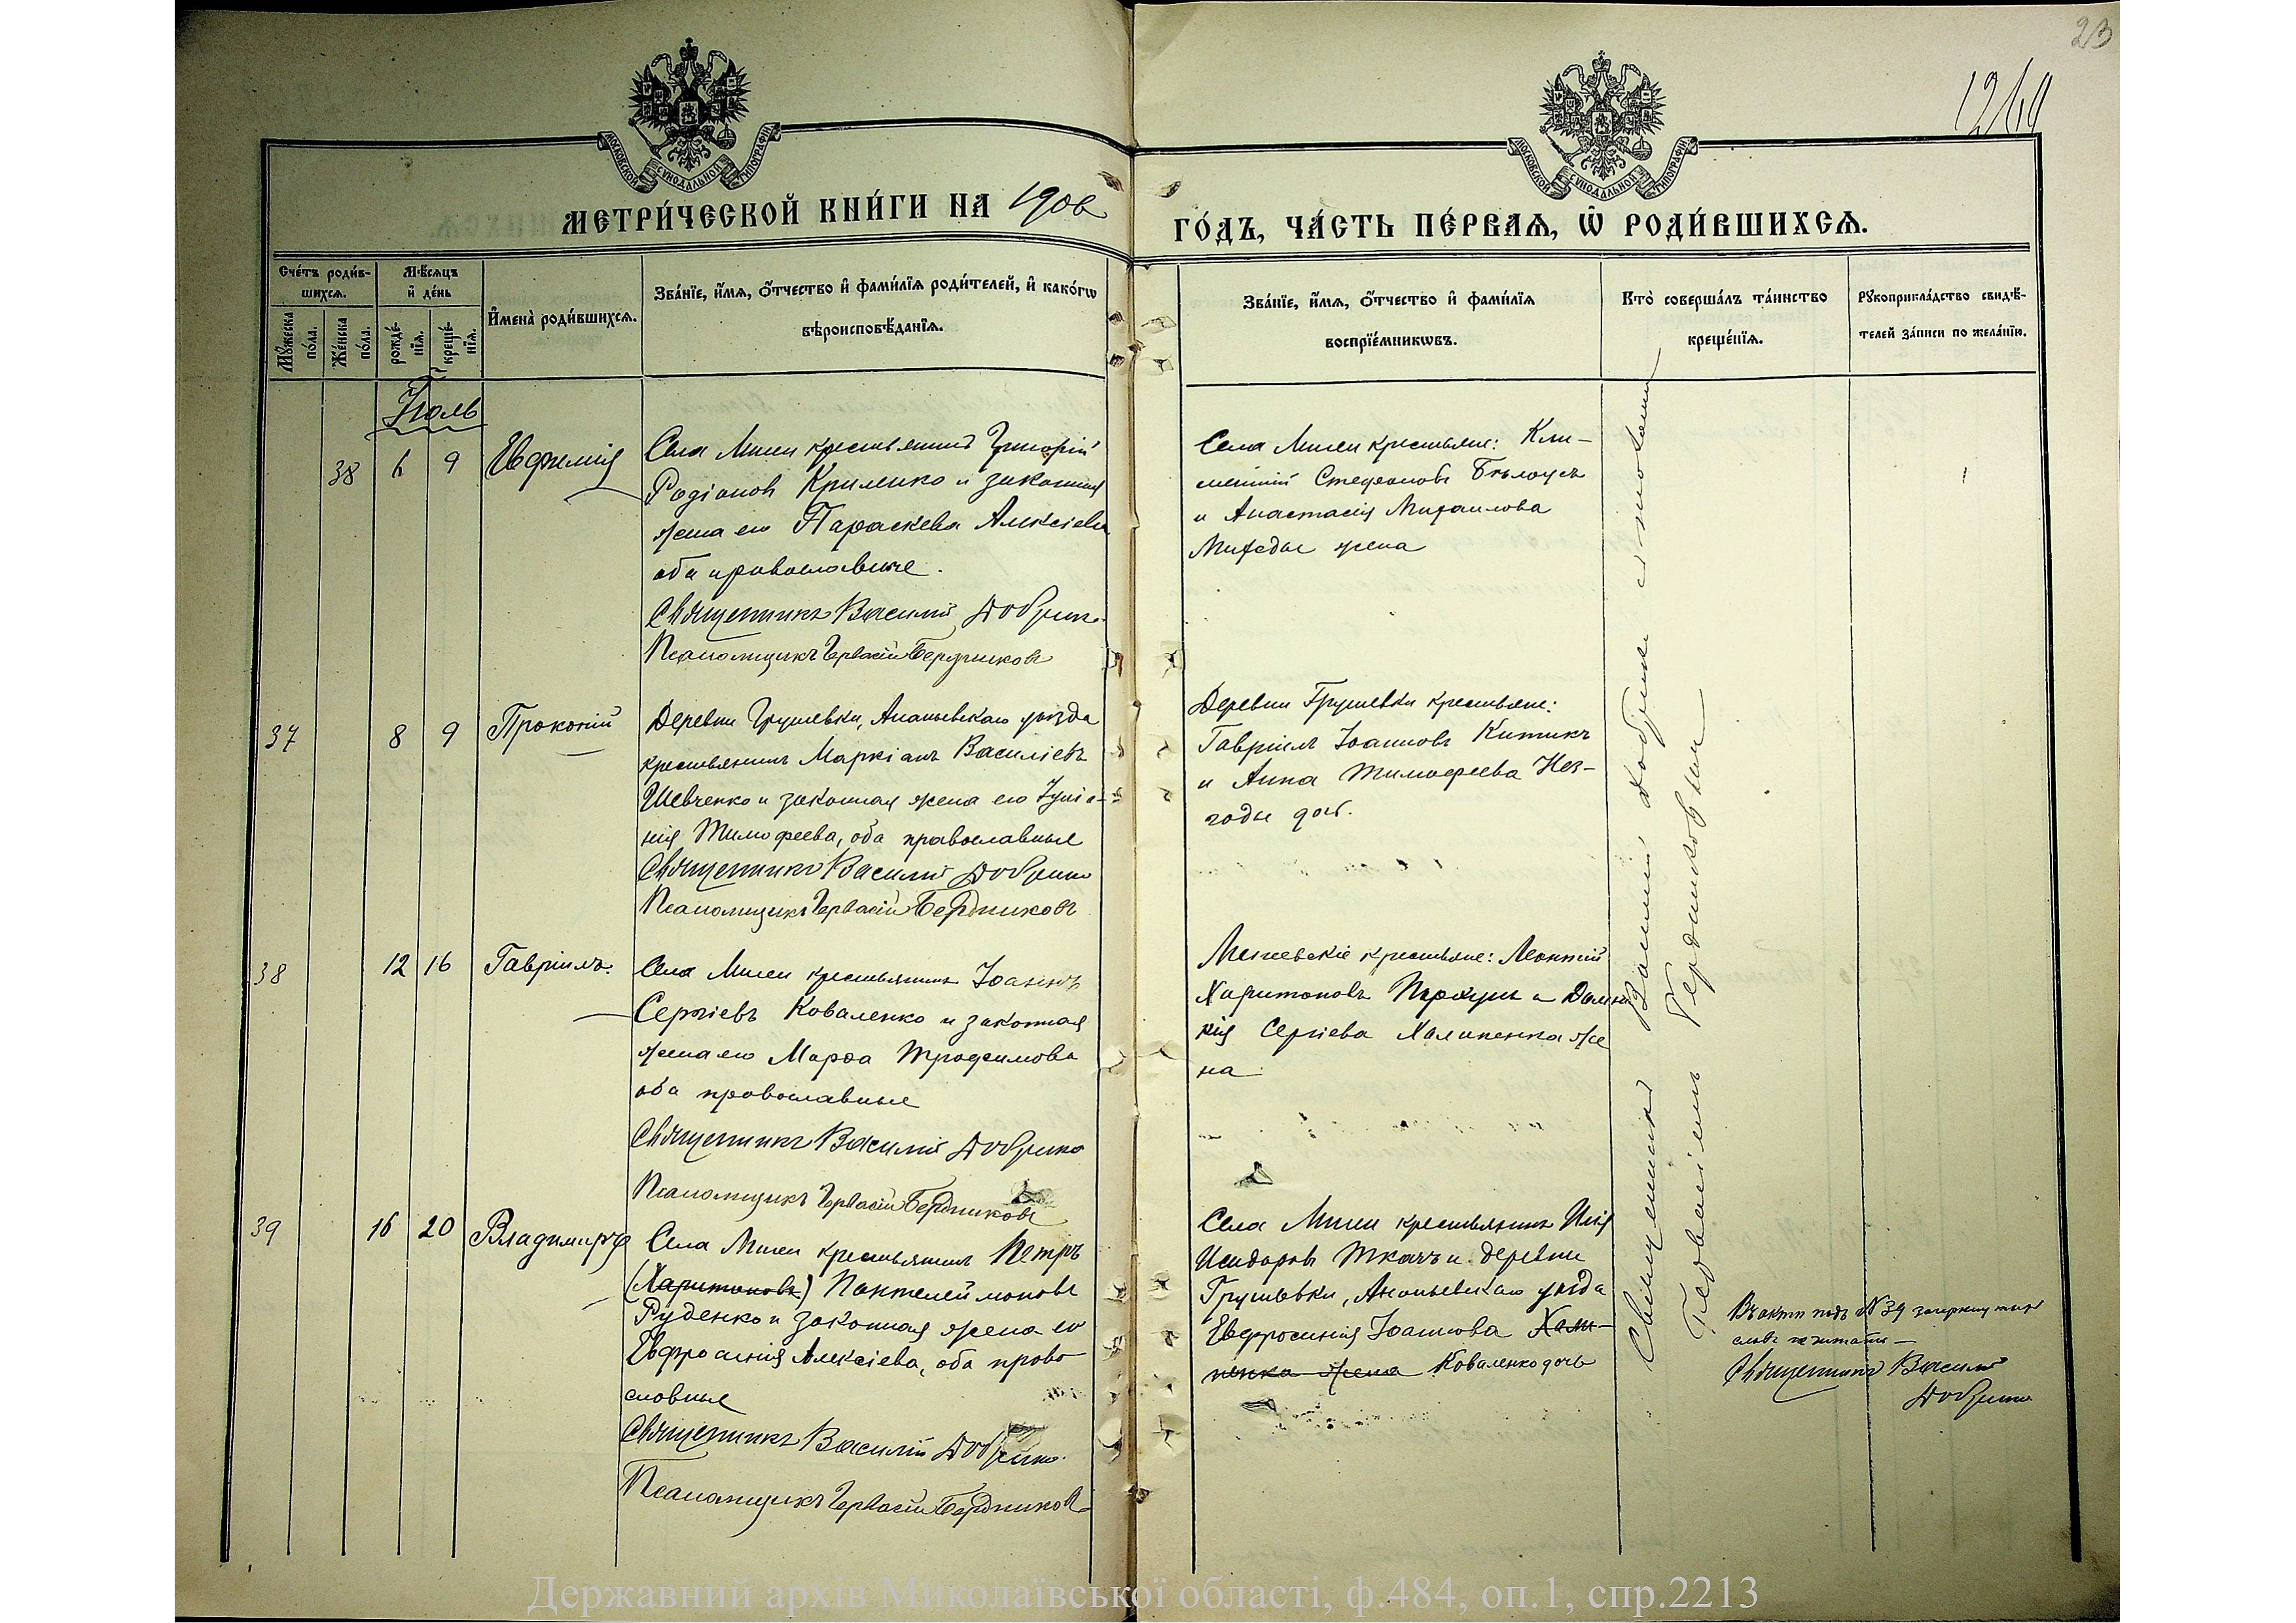 23
12/49
МОСКОВСКОЙ СѴНОДАЛЬНОЙ ТИПОГРАФІИ
МОСКОВСКОЙ СѴНОДАЛЬНОЙ ТИПОГРАФІИ
МЕТРИ́ЧЕСКОЙ КНИ́ГИ НА 1906
ГО́ДЪ, ЧА́СТЬ ПЕ́РВАѦ, Ѡ҆ РОДИ́ВШИХСѦ.
Сче́тъ роди́в-
шихсѧ.
Мѣ́сяцъ
и҆ де́нь
Мꙋ́жеска
по́ла.
Же́нска
по́ла.
рожде́-
нїѧ.
креще́-
нїѧ.
И҆мена̀ роди́вшихсѧ.
Зва́нїе, и҆́мѧ, ѻ҆́тчество и҆ фами́лїѧ роди́телей, и҆ како́гѡ
вѣроисповѣ́данїѧ.
Зва́нїе, и҆́мѧ, ѻ҆́тчество и҆ фами́лїѧ
воспрїе́мникѡвъ.
Кто̀ соверша́лъ та́инство
креще́нїѧ.
Рꙋкоприкла́дство свидѣ́-
телей за́писи по жела́нїю.
Іюль
38 6 9 Евфимія
Села Мигеи крестьянинъ Григорій
Родіоновъ Криленко и законная
жена его Параскева Алексіева
оба православные.
Священникъ Василій Добрин
Псаломщикъ Гервасій Бердниковъ
Села Мигеи крестьяне: Кли-
ментій Стефановъ Бѣлоусъ
и Анастасія Михаилова
жена
37 8 9 Прокопій
Деревни Грушевки, Ананьевскаго уѣзда
крестьянинъ Маркіанъ Василіевъ
Шевченко и законная жена его Іулiа-
нія Тимофеева, оба православные
Священникъ Василій Добрин
Псаломщикъ Гервасій Бердниковъ
Деревни Грушевки крестьяне:
Гавріилъ Іоанновъ Китикъ
и Анна Тимофеева Нез-
годы дочь.
38 12 16 Гавріилъ.
Села Мигеи крестьянинъ Іоаннъ
Сергіевъ Коваленко и законная
жена его Марѳа Трофимова
оба православные
Священникъ Василій Добрин
Псаломщикъ Гервасій Бердниковъ
Мигеевскіе крестьяне: Леонтій
Харитоновъ и Домни-
кія Сергіева Халипенка же
на
39 16 20 Владимиръ
Села Мигеи крестьянинъ Петръ
(Харитоновъ) Пантелеймоновъ
Руденко и законная жена его
Евфросинія Алексіева, оба право
славные
Священникъ Василій Добрин
Псаломщикъ Гервасій Бердниковъ
Села Мигеи крестьянинъ Илія
Исидоровъ Ткачъ и деревни
Грушевки, Ананьевскаго уѣзда
Евфросинія Іоаннова Хали-
пенка жена Коваленко дочь
Священникъ Василій
Гервасіемъ Бердниковымъ
Въ актѣ подъ № 39 зачеркнутыхъ
словъ не читать
Священникъ Василій
Добрин
Державний архів Миколаївської області, ф.484, оп.1, спр.2213